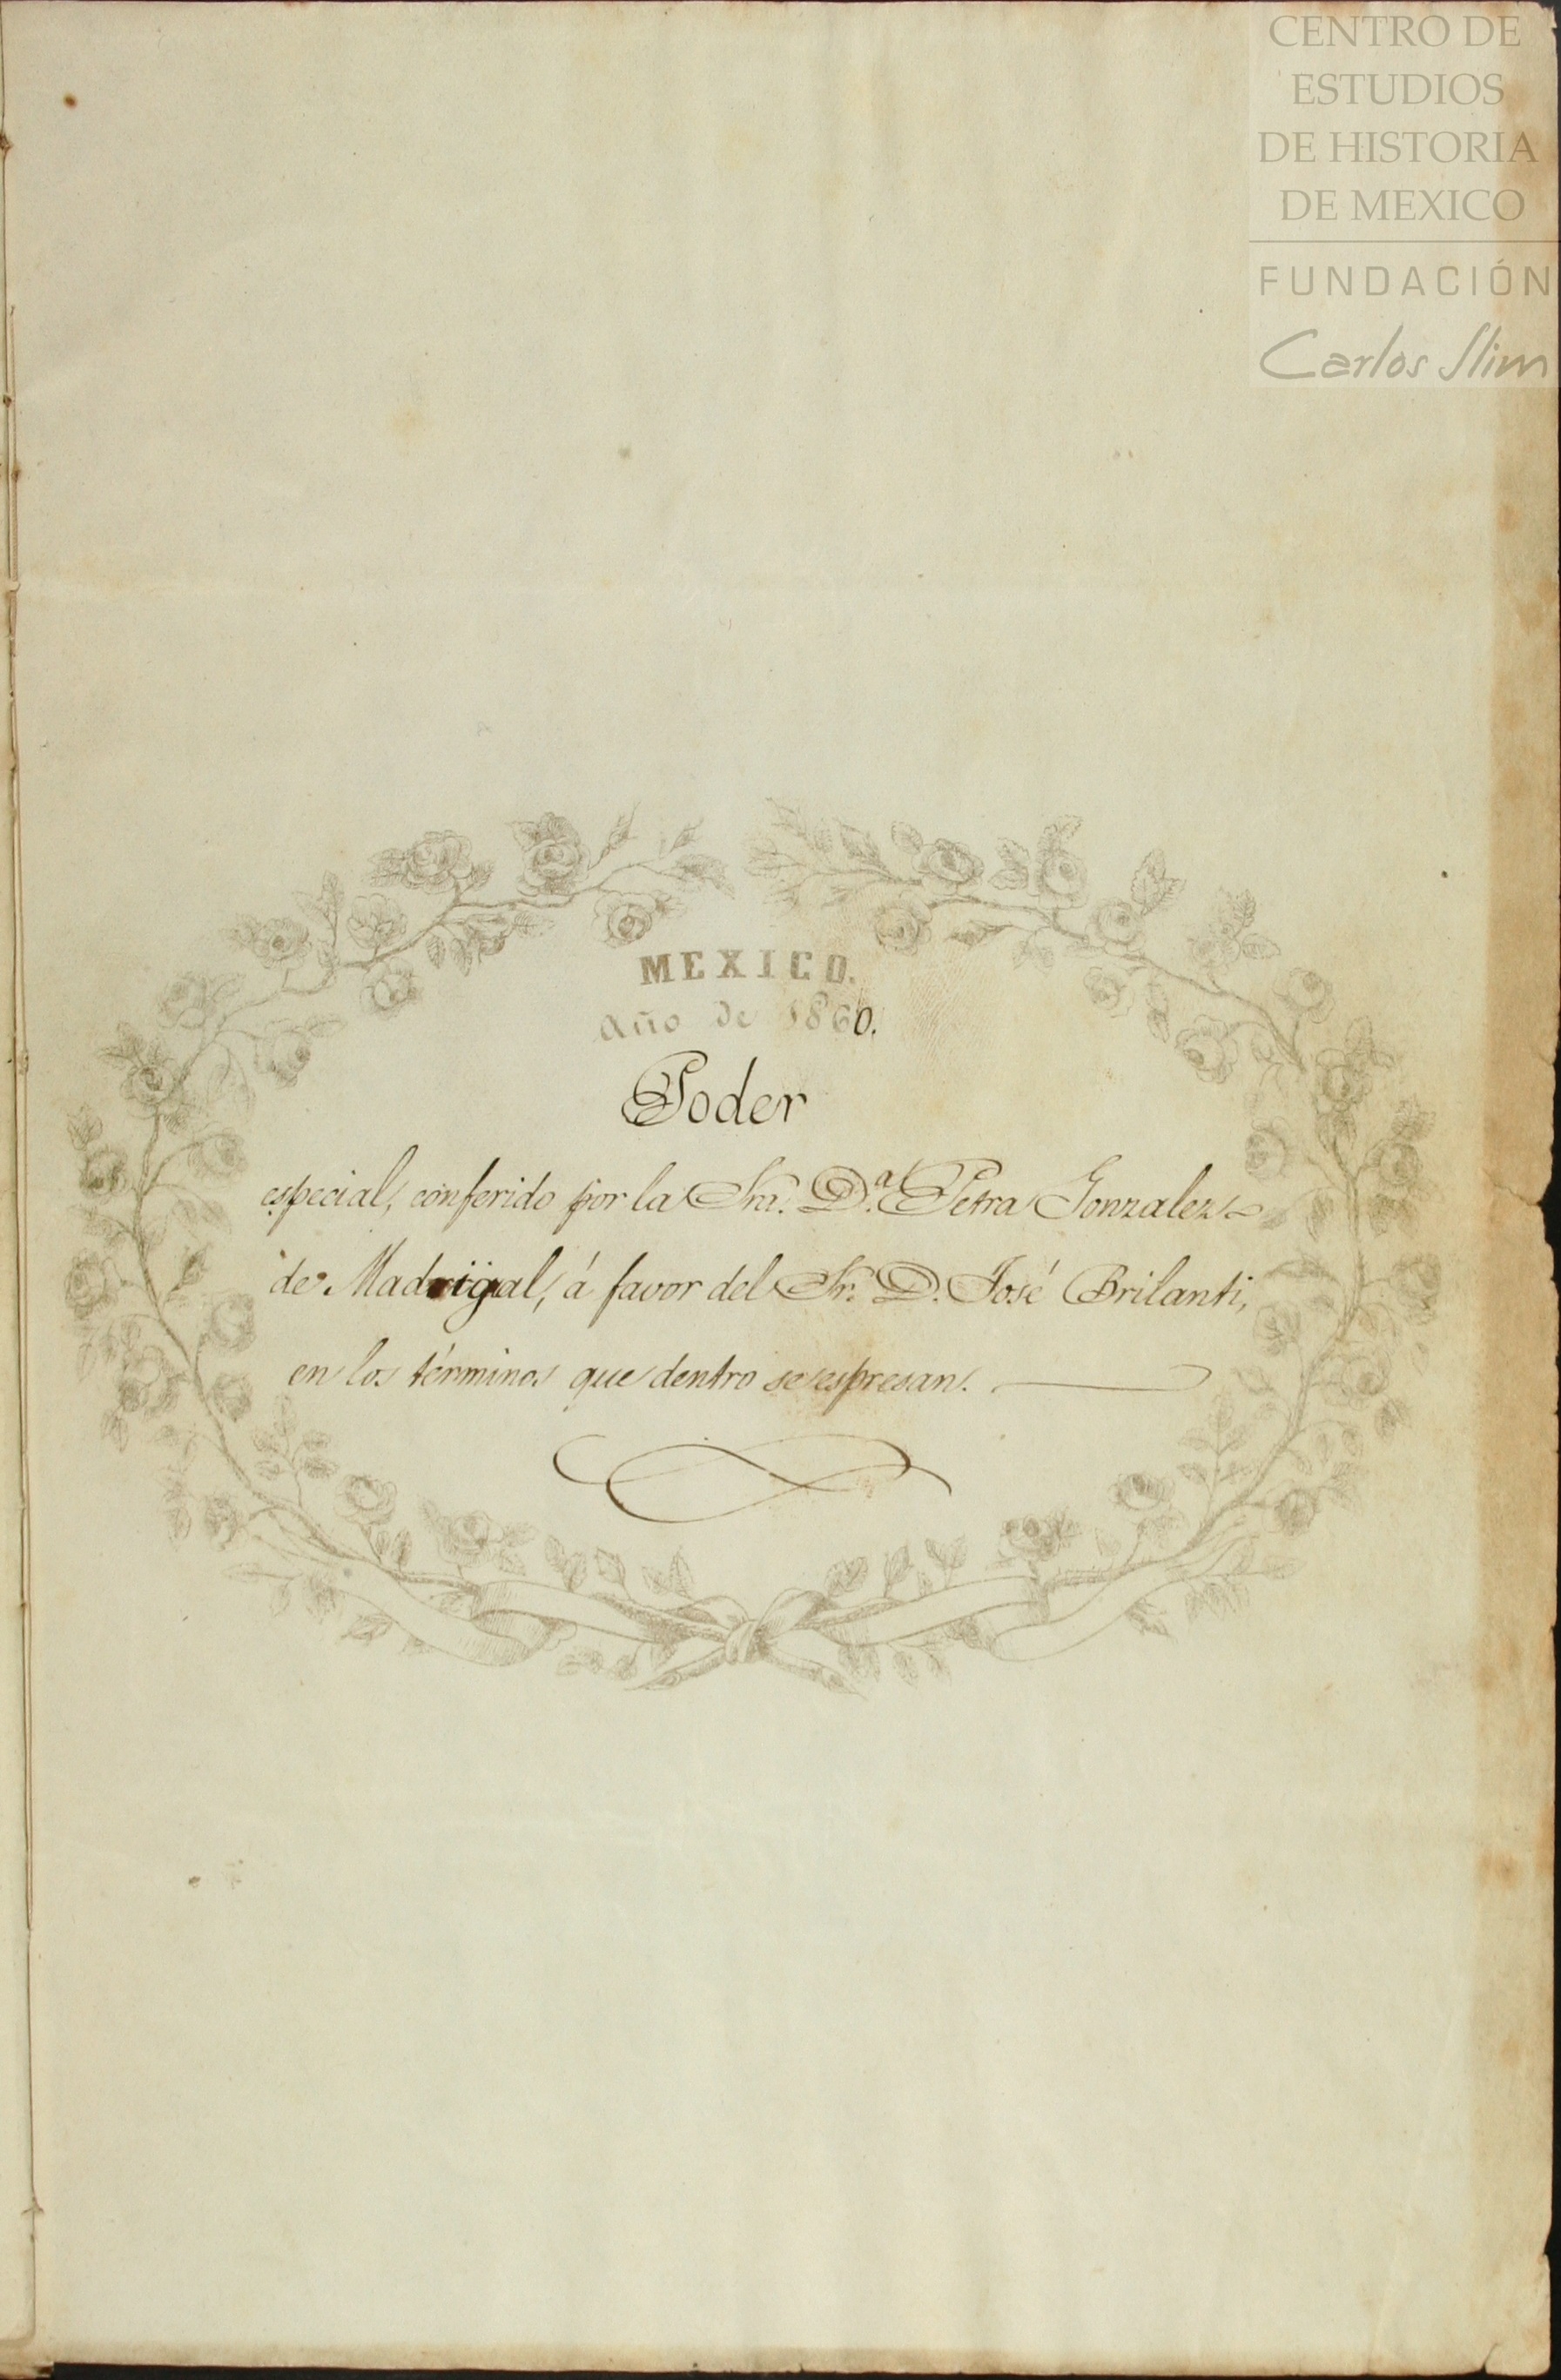 CENTRO DE
ESTUDIOS
DE HISTORIA
DE MEXICO
FUNDACIÓN
Carlos Slim
MEXICO.
Año de 1860.
Poder
especial, conferido por la Sra. D.ª Petra Gonzalez
de Madrigal, á favor del Sr. D. José Brilanti,
en los términos que dentro se espresan.